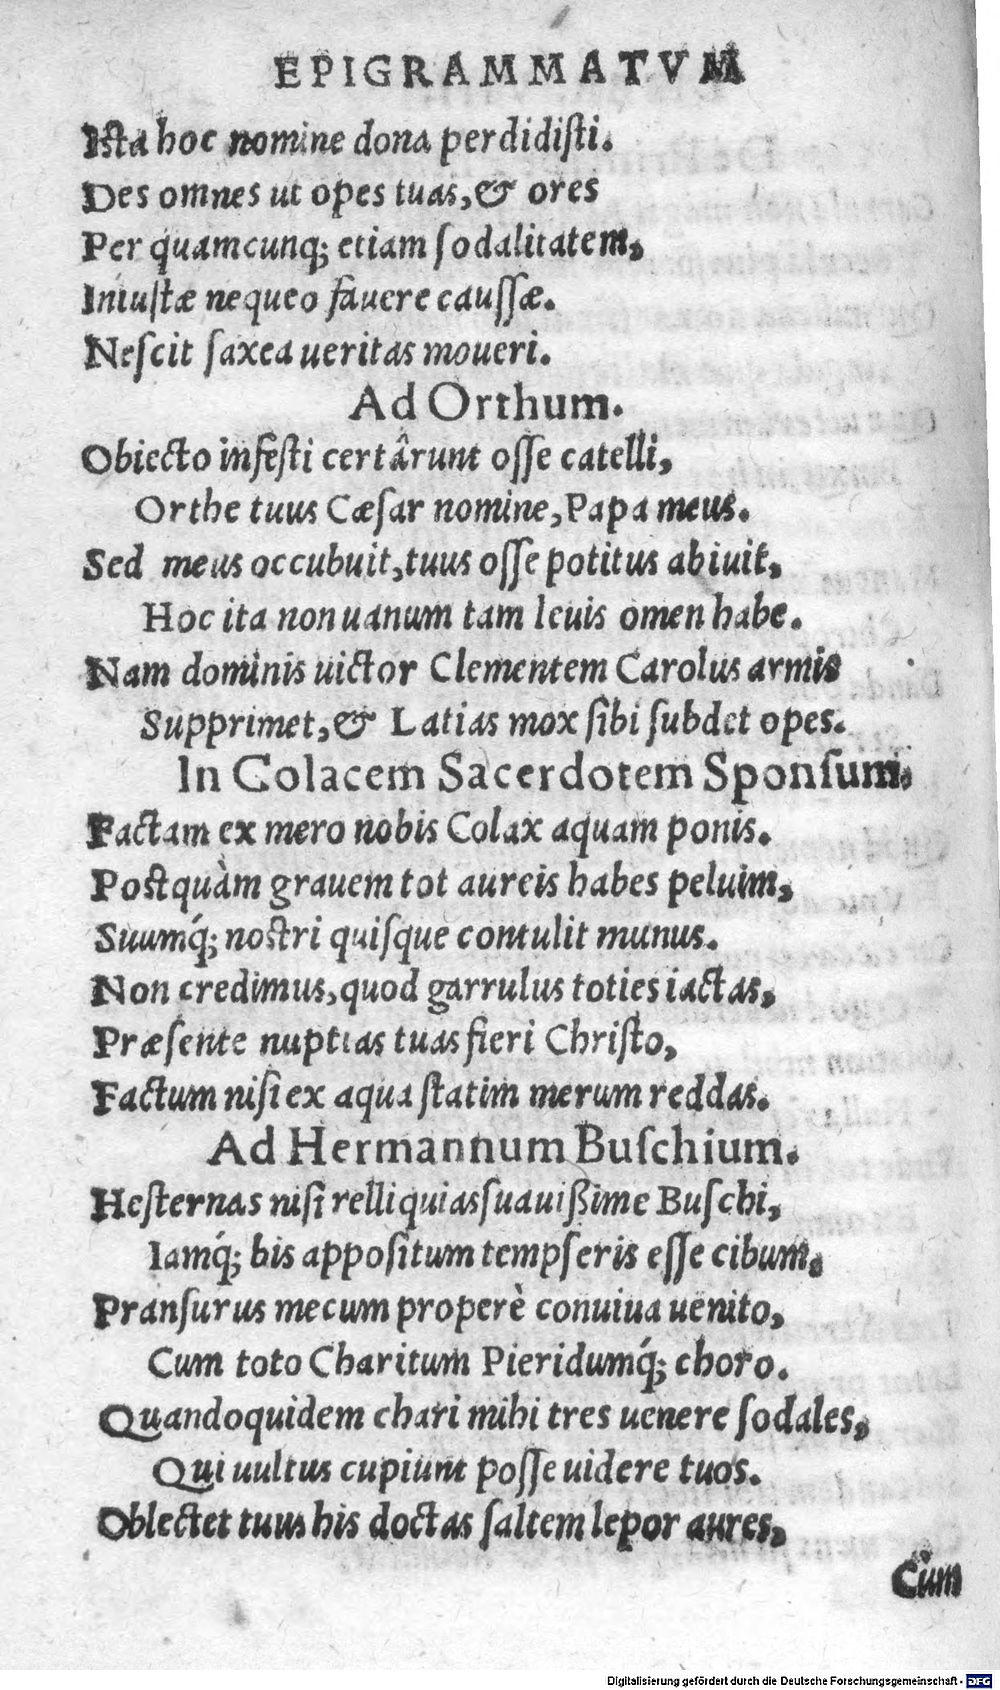 EPIGRAMMATVM
Ista hoc nomine dona perdidisti.
Des omnes ut opes tuas, & ores
Per quamcunq; etiam sodalitatem,
Iniustæ nequeo fauere caussæ.
Nescit saxea ueritas moueri.
Ad Orthum.
Obiecto infesti certârunt osse catelli,
Orthe tuus Cæsar nomine, Papa meus.
Sed meus occubuit, tuus osse potitus abiuit,
Hoc ita non uanum tam leuis omen habe.
Nam dominis uictor Clementem Carolus armis
Supprimet, & Latias mox sibi subdet opes.
In Colacem Sacerdotem Sponsum.
Factam ex mero nobis Colax aquam ponis.
Postquàm grauem tot aureis habes peluim,
Suumq́; nostri quisque contulit munus.
Non credimus, quod garrulus toties iactas,
Præsente nuptias tuas fieri Christo,
Factum nisi ex aqua statim merum reddas.
Ad Hermannum Buschium.
Hesternas nisi relliquias suauißime Buschi,
Iamq́; bis appositum tempseris esse cibum.
Pransurus mecum properè conuiua uenito,
Cum toto Charitum Pieridumq́; choro.
Quandoquidem chari mihi tres uenere sodales,
Qui uultus cupiunt posse uidere tuos.
Oblectet tuus his doctas saltem lepor aures,
Cum
Digitalisierung gefördert durch die Deutsche Forschungsgemeinschaft - DFG